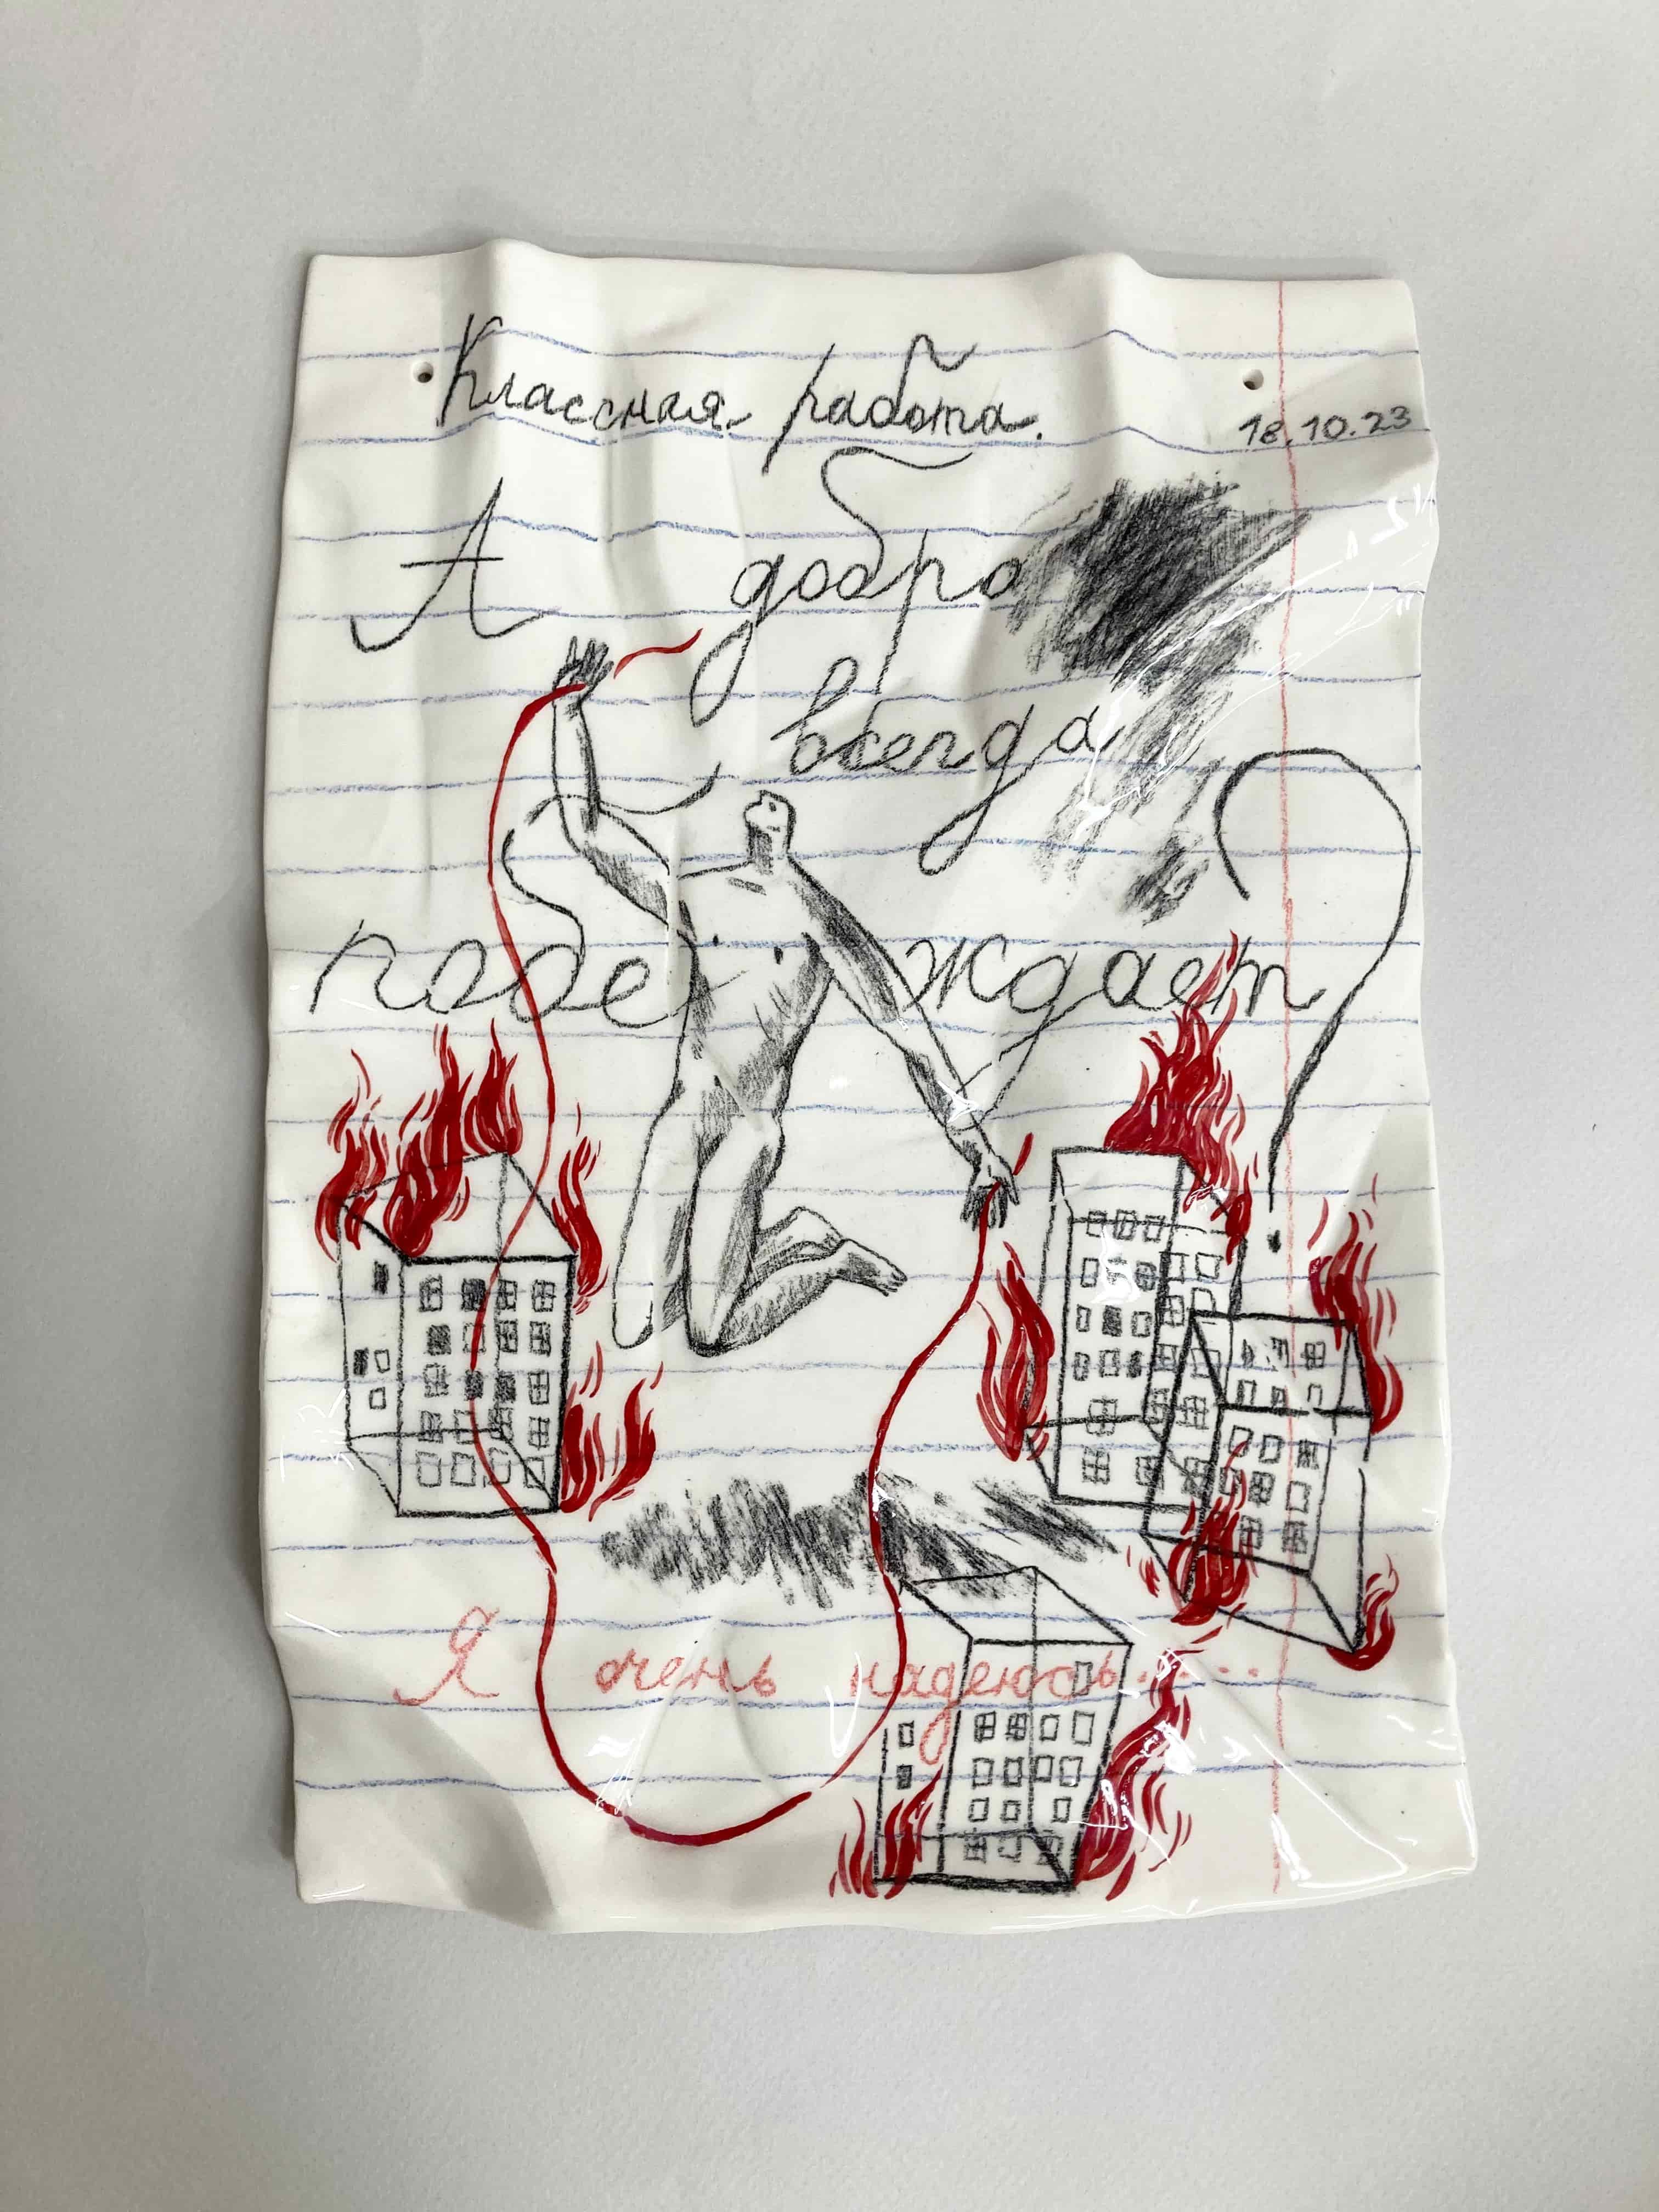 Классная работа.
18.10.23
А добро
всегда
побеждает?
Я очень надеюсь......